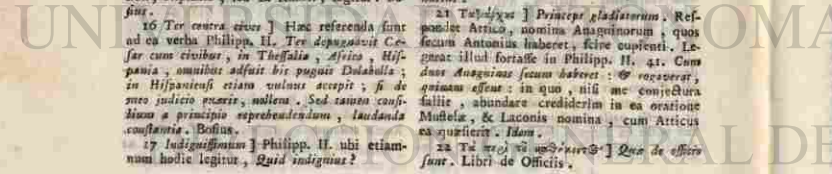 sius.
16 Ter contra cives ] Hæc referenda sunt
ad ea verba Philipp. II. Ter depugnavit Ce-
sar cum civibus, in Thessalia, Africa, His-
pania, omnibus adfuit his pugnis Dolabella;
in Hispaniensi etiam vulnus accepit; si de
meo judicio quæris, nollem. Sed tamen consi-
lium a principio reprehendendum, laudanda
constantia. Bosius.
17 Indignissimum ] Philipp. II. ubi etiam-
num hodie legitur, Quid indignius?
21 ] Princeps gladiatorum. Res-
pondet Attico, nomina Anagninorum, quos
secum Antonius haberet, scire cupienti. Le-
gerat illud fortasse in Philipp. II. 41. Cum
duos Anagninos secum haberet: & rogaverat,
quinam essent: in quo, nisi me conjectura
fallit, abundare crediderim in ea oratione
Mustelæ, & Laconis nomina, cum Atticus
ea quæsierit. Idem.
22 Τὰ περὶ τοῦ ] Quæ de officio
sunt. Libri de Officiis.